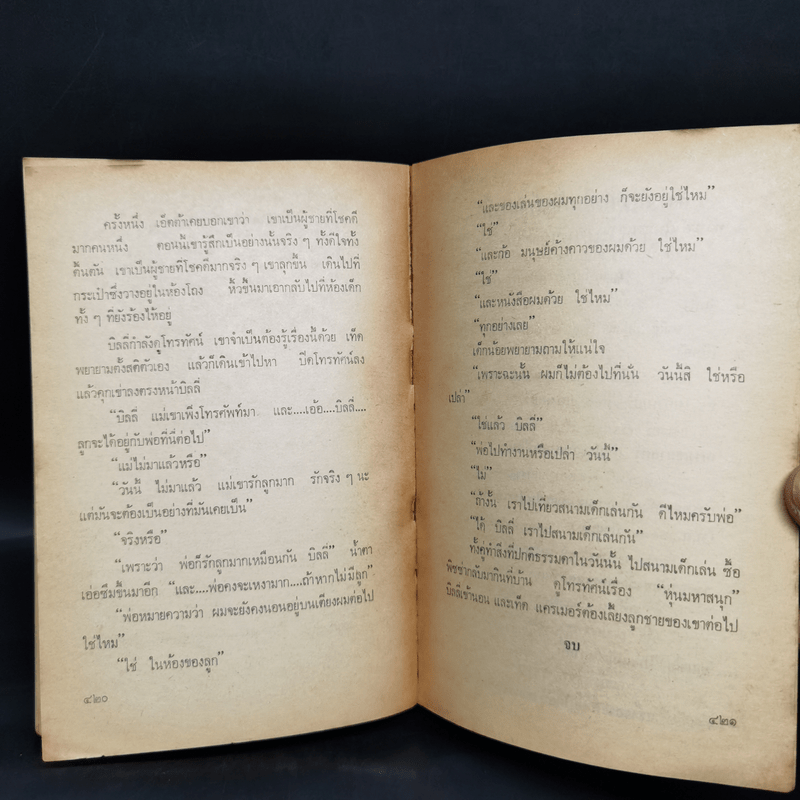 ครั้งหนึ่ง เอ็ตต้าเคยบอกเขาว่า เขาเป็นผู้ชายที่โชคดี
มากคนหนึ่ง ตอนนี้เขารู้สึกเป็นอย่างนั้นจริง ๆ ทั้งดีใจทั้ง
ตื้นตัน เขาเป็นผู้ชายที่โชคดีมากจริง ๆ เขาลุกขึ้น เดินไปที่
กระเป๋าซึ่งวางอยู่ในห้องโถง หิ้วขึ้นมาเอากลับไปที่ห้องเด็ก
ทั้ง ๆ ที่ยังร้องไห้อยู่
บิลลี่กำลังดูโทรทัศน์ เขาจำเป็นต้องรู้เรื่องนี้ด้วย เท็ด
พยายามตั้งสติตัวเอง แล้วก็เดินเข้าไปหา ปิดโทรทัศน์ลง
แล้วคุกเข่าลงตรงหน้าบิลลี่
“บิลลี่ แม่เขาเพิ่งโทรศัพท์มา และ....เอ้อ....บิลลี่....
ลูกจะได้อยู่กับพ่อที่นี่ต่อไป”
“แม่ไม่มาแล้วหรือ”
“วันนี้ ไม่มาแล้ว แม่เขารักลูกมาก รักจริง ๆ นะ
แต่มันจะต้องเป็นอย่างที่มันเคยเป็น”
“จริงหรือ”
“เพราะว่า พ่อก็รักลูกมากเหมือนกัน บิลลี่” น้ำตา
เอ่อซึมขึ้นมาอีก “และ....พ่อคงจะเหงามาก....ถ้าหากไม่มีลูก”
“พ่อหมายความว่า ผมจะยังคงนอนอยู่บนเตียงผมต่อไป
ใช่ไหม”
“ใช่ ในห้องของลูก”
๔๒๐
“และของเล่นของผมทุกอย่าง ก็จะยังอยู่ใช่ไหม”
“ใช่”
“และก้อ มนุษย์ค้างคาวของผมด้วย ใช่ไหม”
“ใช่”
“และหนังสือผมด้วย ใช่ไหม”
“ทุกอย่างเลย”
เด็กน้อยพยายามถามให้แน่ใจ
“เพราะฉะนั้น ผมก็ไม่ต้องไปที่นั่น วันนี้สิ ใช่หรือ
เปล่า”
“ใช่แล้ว บิลลี่”
“พ่อไปทำงานหรือเปล่า วันนี้”
“ไม่”
“ถ้างั้น เราไปเที่ยวสนามเด็กเล่นกัน ดีไหมครับพ่อ”
“ได้ บิลลี่ เราไปสนามเด็กเล่นกัน”
ทั้งคู่ทำสิ่งที่ปกติธรรมดาในวันนั้น ไปสนามเด็กเล่น ซื้อ
พิซซ่ากลับมากินที่บ้าน ดูโทรทัศน์เรื่อง “หุ่นมหาสนุก”
บิลลี่เข้านอน และเท็ด แครเมอร์ต้องเลี้ยงลูกชายของเขาต่อไป
จบ
๔๒๑